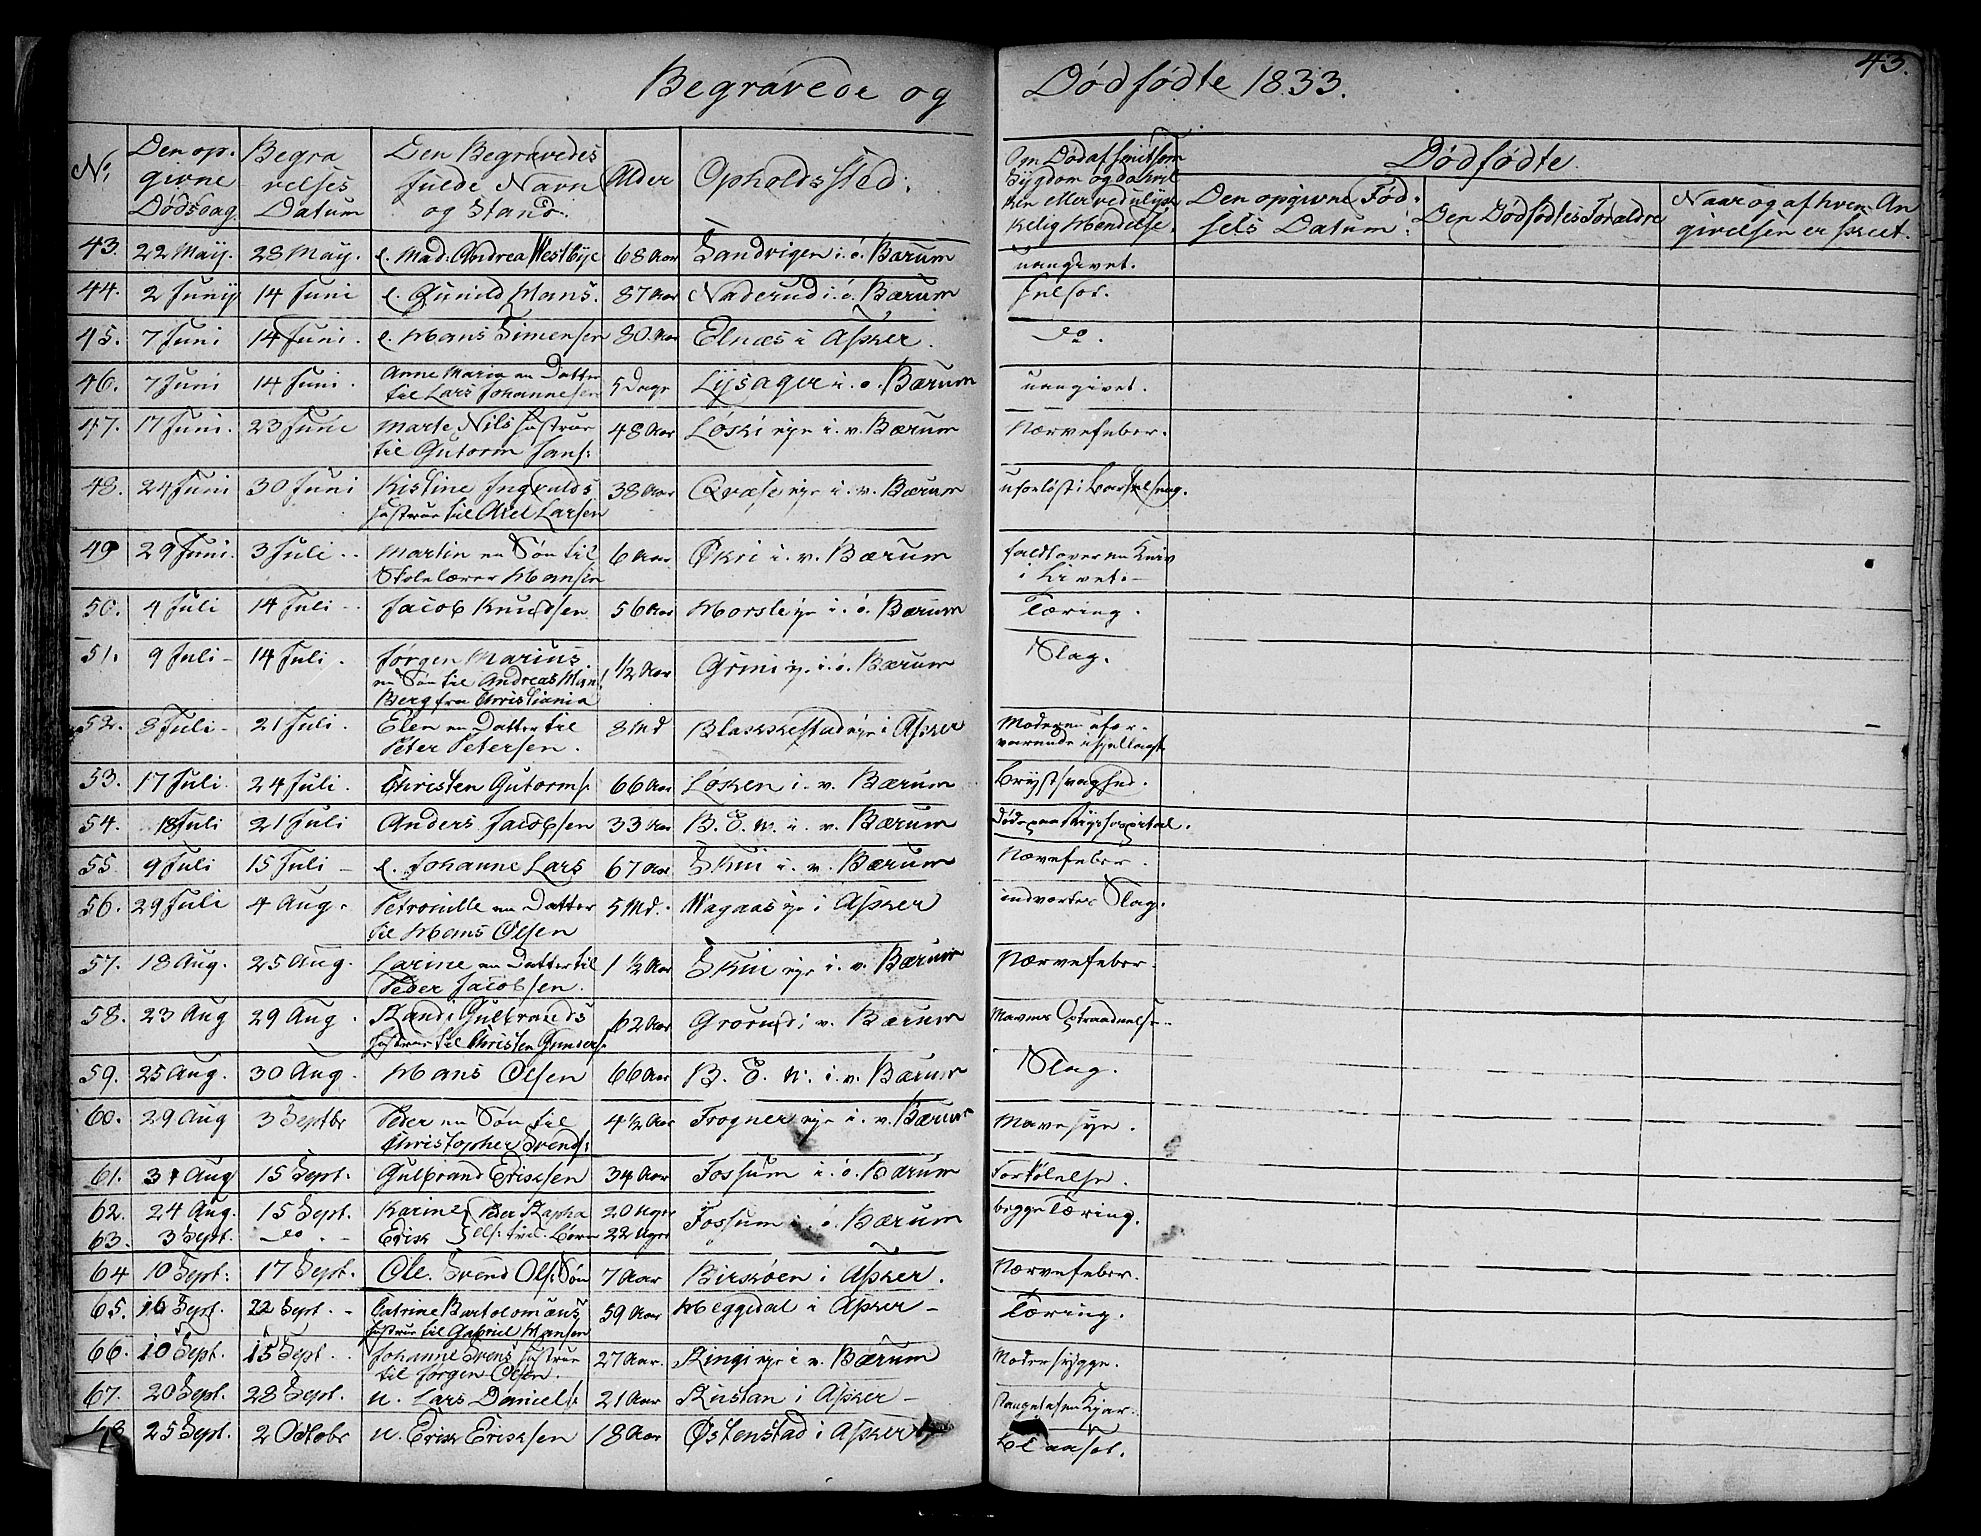 Begravede og Dødfødte 1833. 43.
No Den op- givne Dødsdag Begra velses Datum Den Begravedes fulde Navn og Stand. Alder Opholds Sted. Dødfødte.
Den opgivne Fød- sels Datum. Den Dødfødtes Forældre Naar og af hvem An givelsen er skeet.
43. 22 May. 28 May. e. Mad. Andrea Westbye 68 Aar Sandvigen i. ö. Bærum uangivet.
44. 2 Juny 14 Juni e. Gunild Hans. 87 Aar Naderud i. ö. Bærum
45. 7 Juni 14 Juni. e. Hans Simensen 80. Aar Elnæs i Asker. do.
46. 7 Juni 14 Juni. Anne Maria en Datter 5 Dage Lysager i. ö. Bærum uangivet.
til Lars Johannesen
47. 17 Juni. 23 Juni Marte Nils Hustrue 48 Aar Løski eye i. v. Bærum Nærvefeber.
til Gutorm Jans:
48. 24 Juni 30 Juni Kistine Ingvulds 38 Aar Qvæse eye i. v. Bærum uforløst i Barselseng.
Hustrue til Axel Larsen
49 29 Juni. 3 Juli Martin en Søn til 6 Aar Økri i. v. Bærum faldt over en Kniv
Skolelærer Hansen i Livet.
50. 4 Juli 14 Juli Jacob Knudsen 56 Aar Horsle eye i. ö. Bærum Tæring.
51. 9 Juli 14 Juli. Jørgen Marius 1/2 Aar Grini eye i. ö. Bærum Slag.
en Søn til Andreas
Berg fra Christiania
52. 8 Juli 21 Juli. Elen en Datter til 8 Md Blakkestad eye i Asker Moderen ufor-
Peter Petersen. varende ihjellagt
53. 17 Juli. 24 Juli. Christen Gutorms: 66 Aar Løken i. v. Bærum Brystsvaghed.
54. 18 Juli 21 Juli Anders Jacobsen 33 Aar B. E. W. i. v. Bærum døde paa Rigshospital.
55 9 Juli 15 Juli e. Johanne Lars 67 Aar Skui i. v. Bærum Nævefeber.
56. 29 Juli 4 Aug. Petronille en Datter 5 Md. Wagaas eye i Asker indvortes Slag.
til Hans Olsen
57. 18 Aug. 25 Aug. Larine en Datter til 1 1/2 Aar Skui eye i. v. Bærum Nærvefeber.
Peder Jacobsen.
58. 23 Aug 29 Aug. Randi Gulbrands 62 Aar Grorud i v. Bærum
Hustrue til Christen Gunders:
59. 25 Aug. 30 Aug. Hans Olsen 66 Aar B. E. W. i. v. Bærum Slag.
60. 29 Aug 3 Septbr Peder en Søn til 4 1/2 Aar Frogner eye i. v. Bærum Mavesye.
Christopher Svends:
61. 31 Aug 15 Sept. Gulbrand Ericksen 34 Aar Fossum i. ö. Bærum Forkølelse.
62. 24 Aug. 15 Sept. Karine Peder 20 Uger Fossum i. ö. Bærum begge Tæring.
63. 3 Sept. do Erick 22 Uger
64 10 Sept: 17 Sept. Ole. Svend Ols: Søn 7 Aar Birkøen i Asker. Nærvefeber.
65. 16 Sept. 22 Sept. Catrine Bartolomæus 59 Aar Heggedal i Asker Tæring.
Hustrue til Gabriel Hansen
66. 10 Sept. 15 Sept. Johanne Svens Hustrue 27 Aar. Ringi eye i v. Bærum Modersygge.
til Jørgen Olsen.
67. 20 Sept. 28 Sept. u. Lars Daniels: 21 Aar Rustan i Asker
68 25 Sept. 2 Octobr u. Erick Ericksen 18 Aar Østenstad i Asker